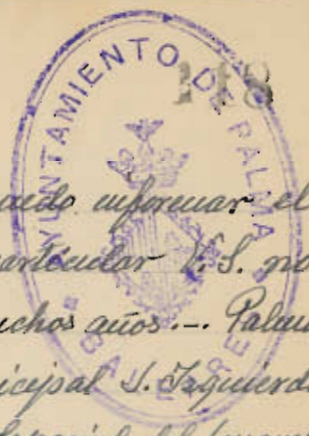 AYUNTAMIENTO DE PALMA
BALEARES
118
puedo informar el
particular V.S. no
muchos años.-. Palma
icipal I. Izquierdo